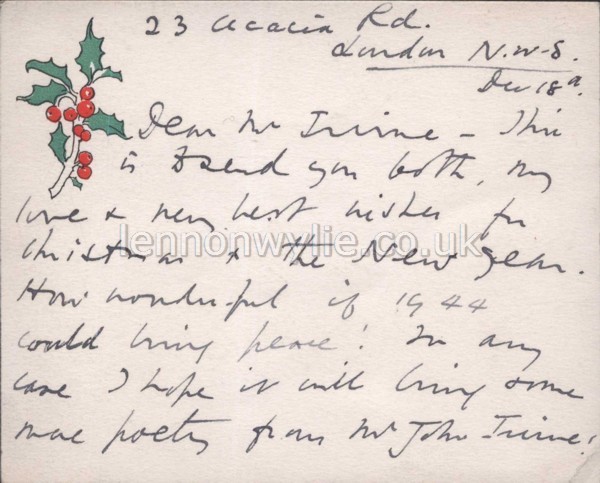 23 Acacia Rd.
London N.W.8.
Dec 18th.
Dear Mr Irvine – This
is to send you both, my
love & very best wishes for
Christmas & the New Year.
lennonwylie.co.uk
How wonderful if 1944
could bring peace! In any
case I hope it will bring some
more poetry from Mr John Irvine!